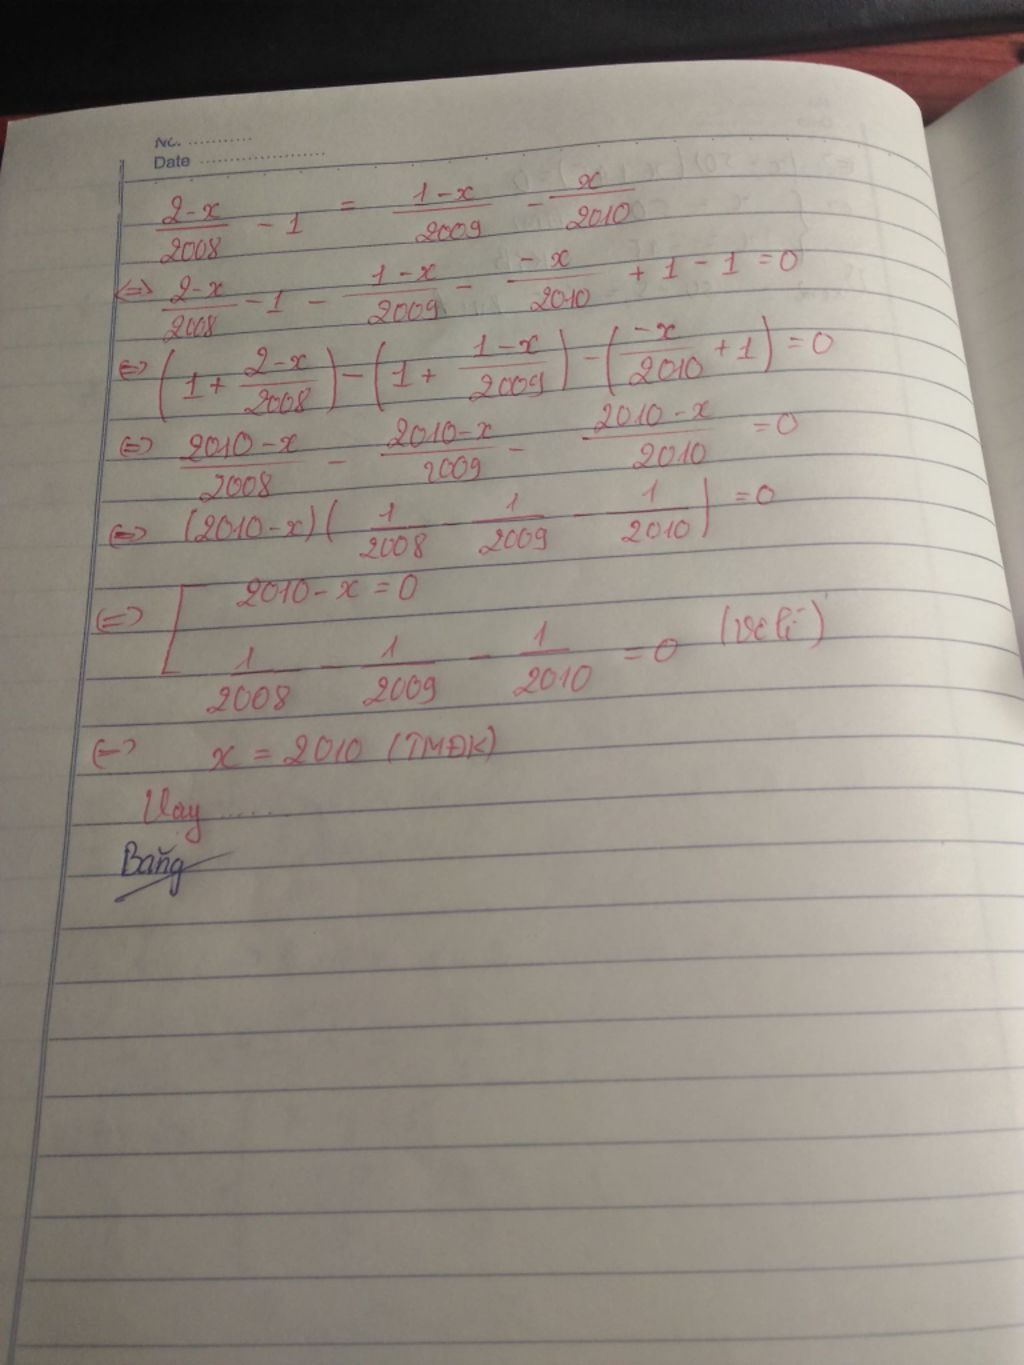 No. ............
Date ........................
\frac{2-x}{2008} - 1 = \frac{1-x}{2009} - \frac{x}{2010}
<=> \frac{2-x}{2008} - 1 - \frac{1-x}{2009} - \frac{-x}{2010} + 1 - 1 = 0
<=> (1 + \frac{2-x}{2008}) - (1 + \frac{1-x}{2009}) - (\frac{-x}{2010} + 1) = 0
<=> \frac{2010-x}{2008} - \frac{2010-x}{2009} - \frac{2010-x}{2010} = 0
<=> (2010-x)(\frac{1}{2008} - \frac{1}{2009} - \frac{1}{2010}) = 0
<=> [ 2010 - x = 0
\frac{1}{2008} - \frac{1}{2009} - \frac{1}{2010} = 0 (vô lí)
<=> x = 2010 (TMĐK)
Vậy ......
Bằng